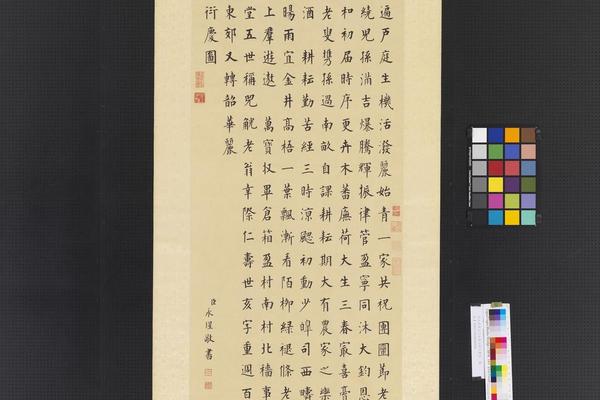 遍戶庭生機活潑麗始青一家共祝團圞節老
繞兒孫滿吉爆騰輝振律管盈寧同沐大鈞恩
和初届時序更卉木蕃廡荷大生三春最喜膏
老叟攜孫過南畝自課耕耘期大有農家之樂
酒 耕耘勤苦經三時涼颸初動少皞司西疇
暘雨宜金井高梧一葉飄漸看陌柳綠褪條老
上羣遊遨 萬寶収畢倉箱盈村南村北禱事
堂五世稱兕觥老翁幸際仁壽世亥字重週百
東郊又轉韶華麗
衍慶圖
臣永瑆敬書